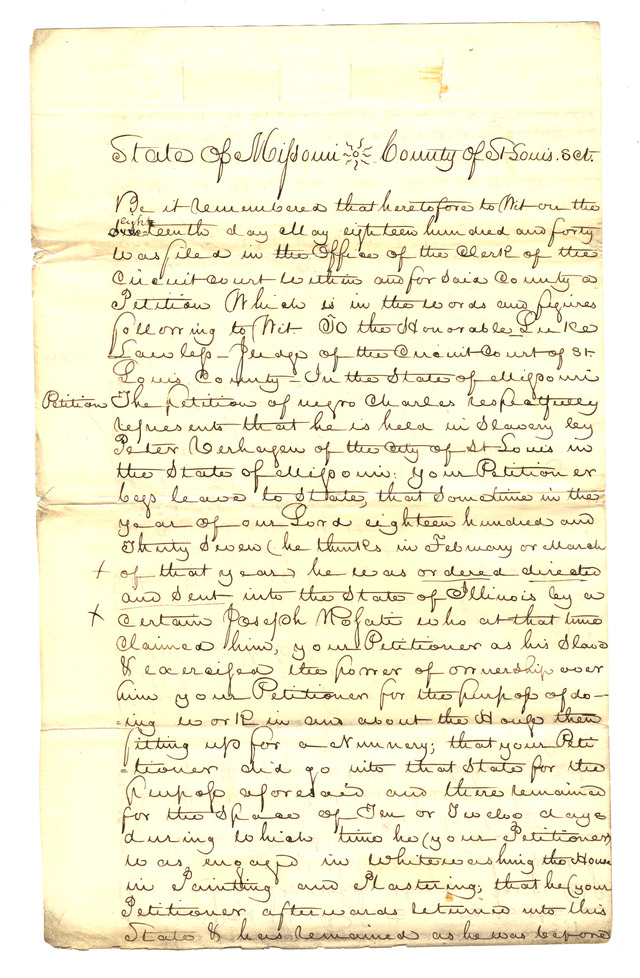 State of Missouri County of St Louis. sct.
Be it remembered that heretofore to Wit on the
eighteenth day May eighteen hundred and forty
was filed in the Office of the Clerk of the
Circuit court within and for said County a
Petition Which is in the words and figures
following to Wit To the Honorable Luke
Lawless - Judge of the Circuit Court of St.
Louis County - In the State of Missouri
Petition The petition of negro Charles respectfully
represents that he is held in Slavery by
Peter Verhagen of the City of St Louis in
the State of Missouri: your Petitioner
begs leave to State, that sometime in the
year of our Lord eighteen hundred and
Thirty Seven (he thinks in February or March
+ of that year) he was ordered directed
and sent into the State of Illinois by a
+ certain Joseph who at that time
claimed him, your Petitioner as his Slave
& exercised the power of ownership over
him your Petitioner for the purpose of do-
-ing work in and about the House then
fitting up for a Nunnery; that your Peti
-tioner did go into that State for the
purpose aforesaid and there remained
for the Space of Ten or Twelve days
during which time he (your Petitioner)
was engaged in Whitewashing the House
in Painting and Plastering; that he (your
Petitioner afterwards returned into this
State & has remained as he was before